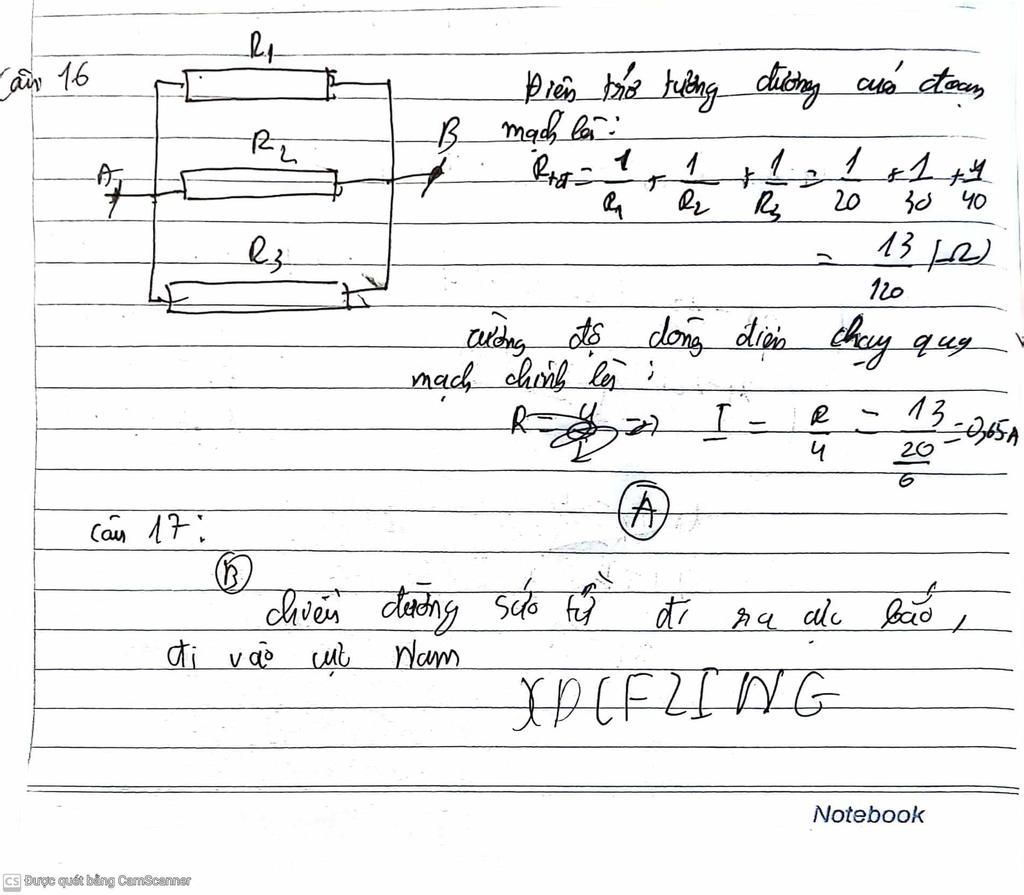 Câu 16
R1
R2
R3
A
B
Điện trở tương đương của đoạn
mạch là:
Rtđ = 1/R1 + 1/R2 + 1/R3 = 1/20 + 1/30 + 1/40
= 13/120 (Ω)
cường độ dòng điện chạy qua
mạch chính là :
=> I = R/U = 13/(20/6) = 0,65A
A
Câu 17:
B
chiều đường sức từ đi ra cực bắc,
đi vào cực Nam
Notebook
CS Được quét bằng CamScanner